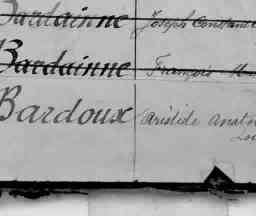 Bardainne Joseph Constant
Bardainne François
Bardoux Aristide Anat